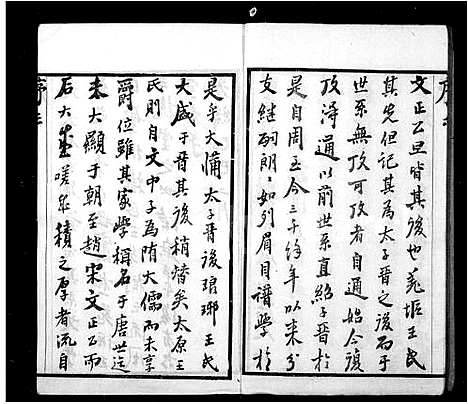 文正公旦皆其後也羌垢王氏
其先但记其为太子晋之後而于
世系無可攷者自通始今復
攷得通以前世系直绍子晋於
是自周至今三千馀年以来分
支继嗣朗朗如列眉目谱學於
是乎大備太子晋後琅琊王氏
大盛于晋其後稍替矣太原王
氏则自文中子為隋大儒而未享
爵位雖其家學稱名于唐世迄
未大顯于朝至趙宋文正公而
后大盛嗟乎積之厚者流自
序三